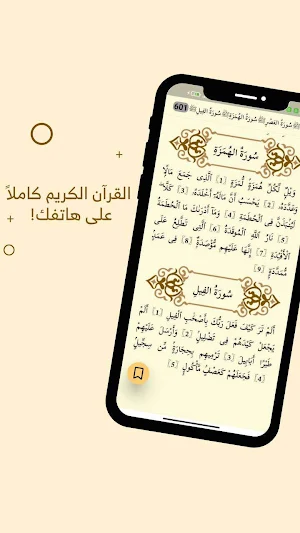 القرآن الكريم كاملاً
على هاتفك!
سُورَةُ العَصْرِ سُورَةُ الهُمَزَةِ سُورَةُ الفِيلِ 601
سُورَةُ الهُمَزَةِ
وَيْلٌ لِّكُلِّ هُمَزَةٍ لُّمَزَةٍ [1] الَّذِى جَمَعَ مَالًا
وَعَدَّدَهُۥ [2] يَحْسَبُ أَنَّ مَالَهُۥٓ أَخْلَدَهُۥ [3] كَلَّا
لَيُنۢبَذَنَّ فِى الْحُطَمَةِ [4] وَمَآ أَدْرَىٰكَ مَا الْحُطَمَةُ
[5] نَارُ اللَّهِ الْمُوقَدَةُ [6] الَّتِى تَطَّلِعُ عَلَى
الْأَفْـِٔدَةِ [7] إِنَّهَا عَلَيْهِم مُّؤْصَدَةٌ [8] فِى عَمَدٍ
مُّمَدَّدَةٍۭ [9]
سُورَةُ الفِيلِ
أَلَمْ تَرَ كَيْفَ فَعَلَ رَبُّكَ بِأَصْحَٰبِ الْفِيلِ [1] أَلَمْ
يَجْعَلْ كَيْدَهُمْ فِى تَضْلِيلٍ [2] وَأَرْسَلَ عَلَيْهِمْ
طَيْرًا أَبَابِيلَ [3] تَرْمِيهِم بِحِجَارَةٍ مِّن سِجِّيلٍ
[4] فَجَعَلَهُمْ كَعَصْفٍ مَّأْكُولٍۭ [5]